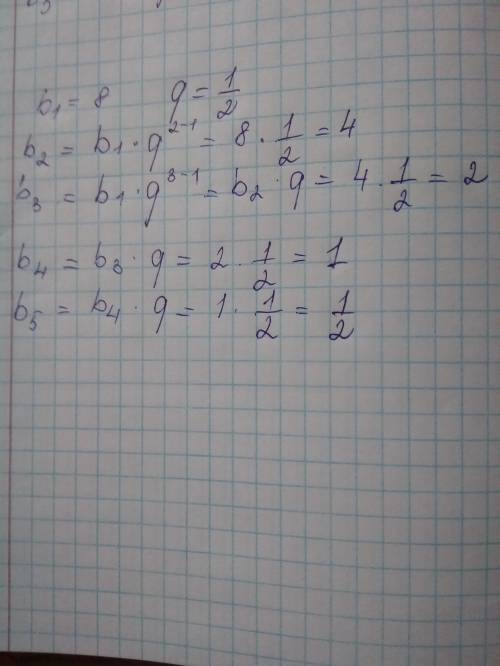 b₁ = 8 q = 1/2
b₂ = b₁ · q²⁻¹ = 8 · 1/2 = 4
b₃ = b₁ · q³⁻¹ = b₂ · q = 4 · 1/2 = 2
b₄ = b₃ · q = 2 · 1/2 = 1
b₅ = b₄ · q = 1 · 1/2 = 1/2